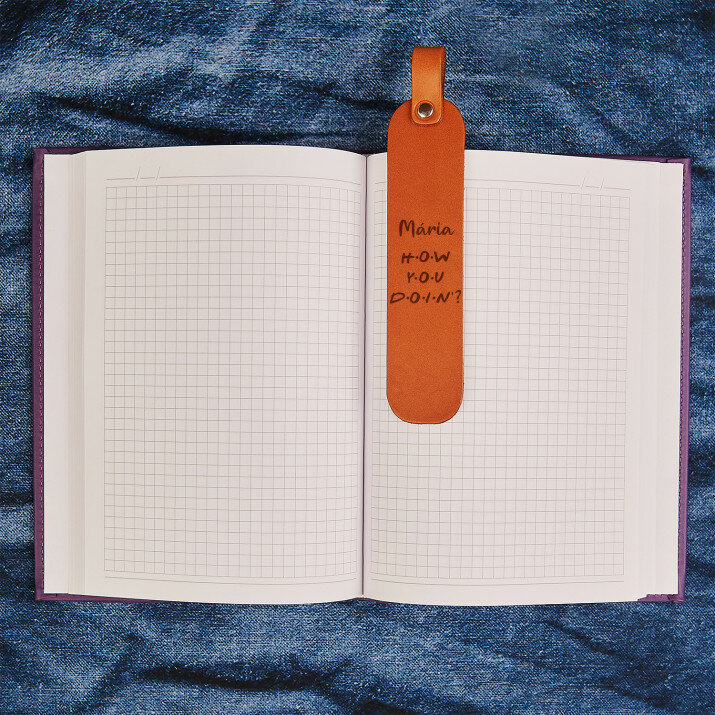 Mária
H·O·W
Y·O·U
D·O·I·N'?